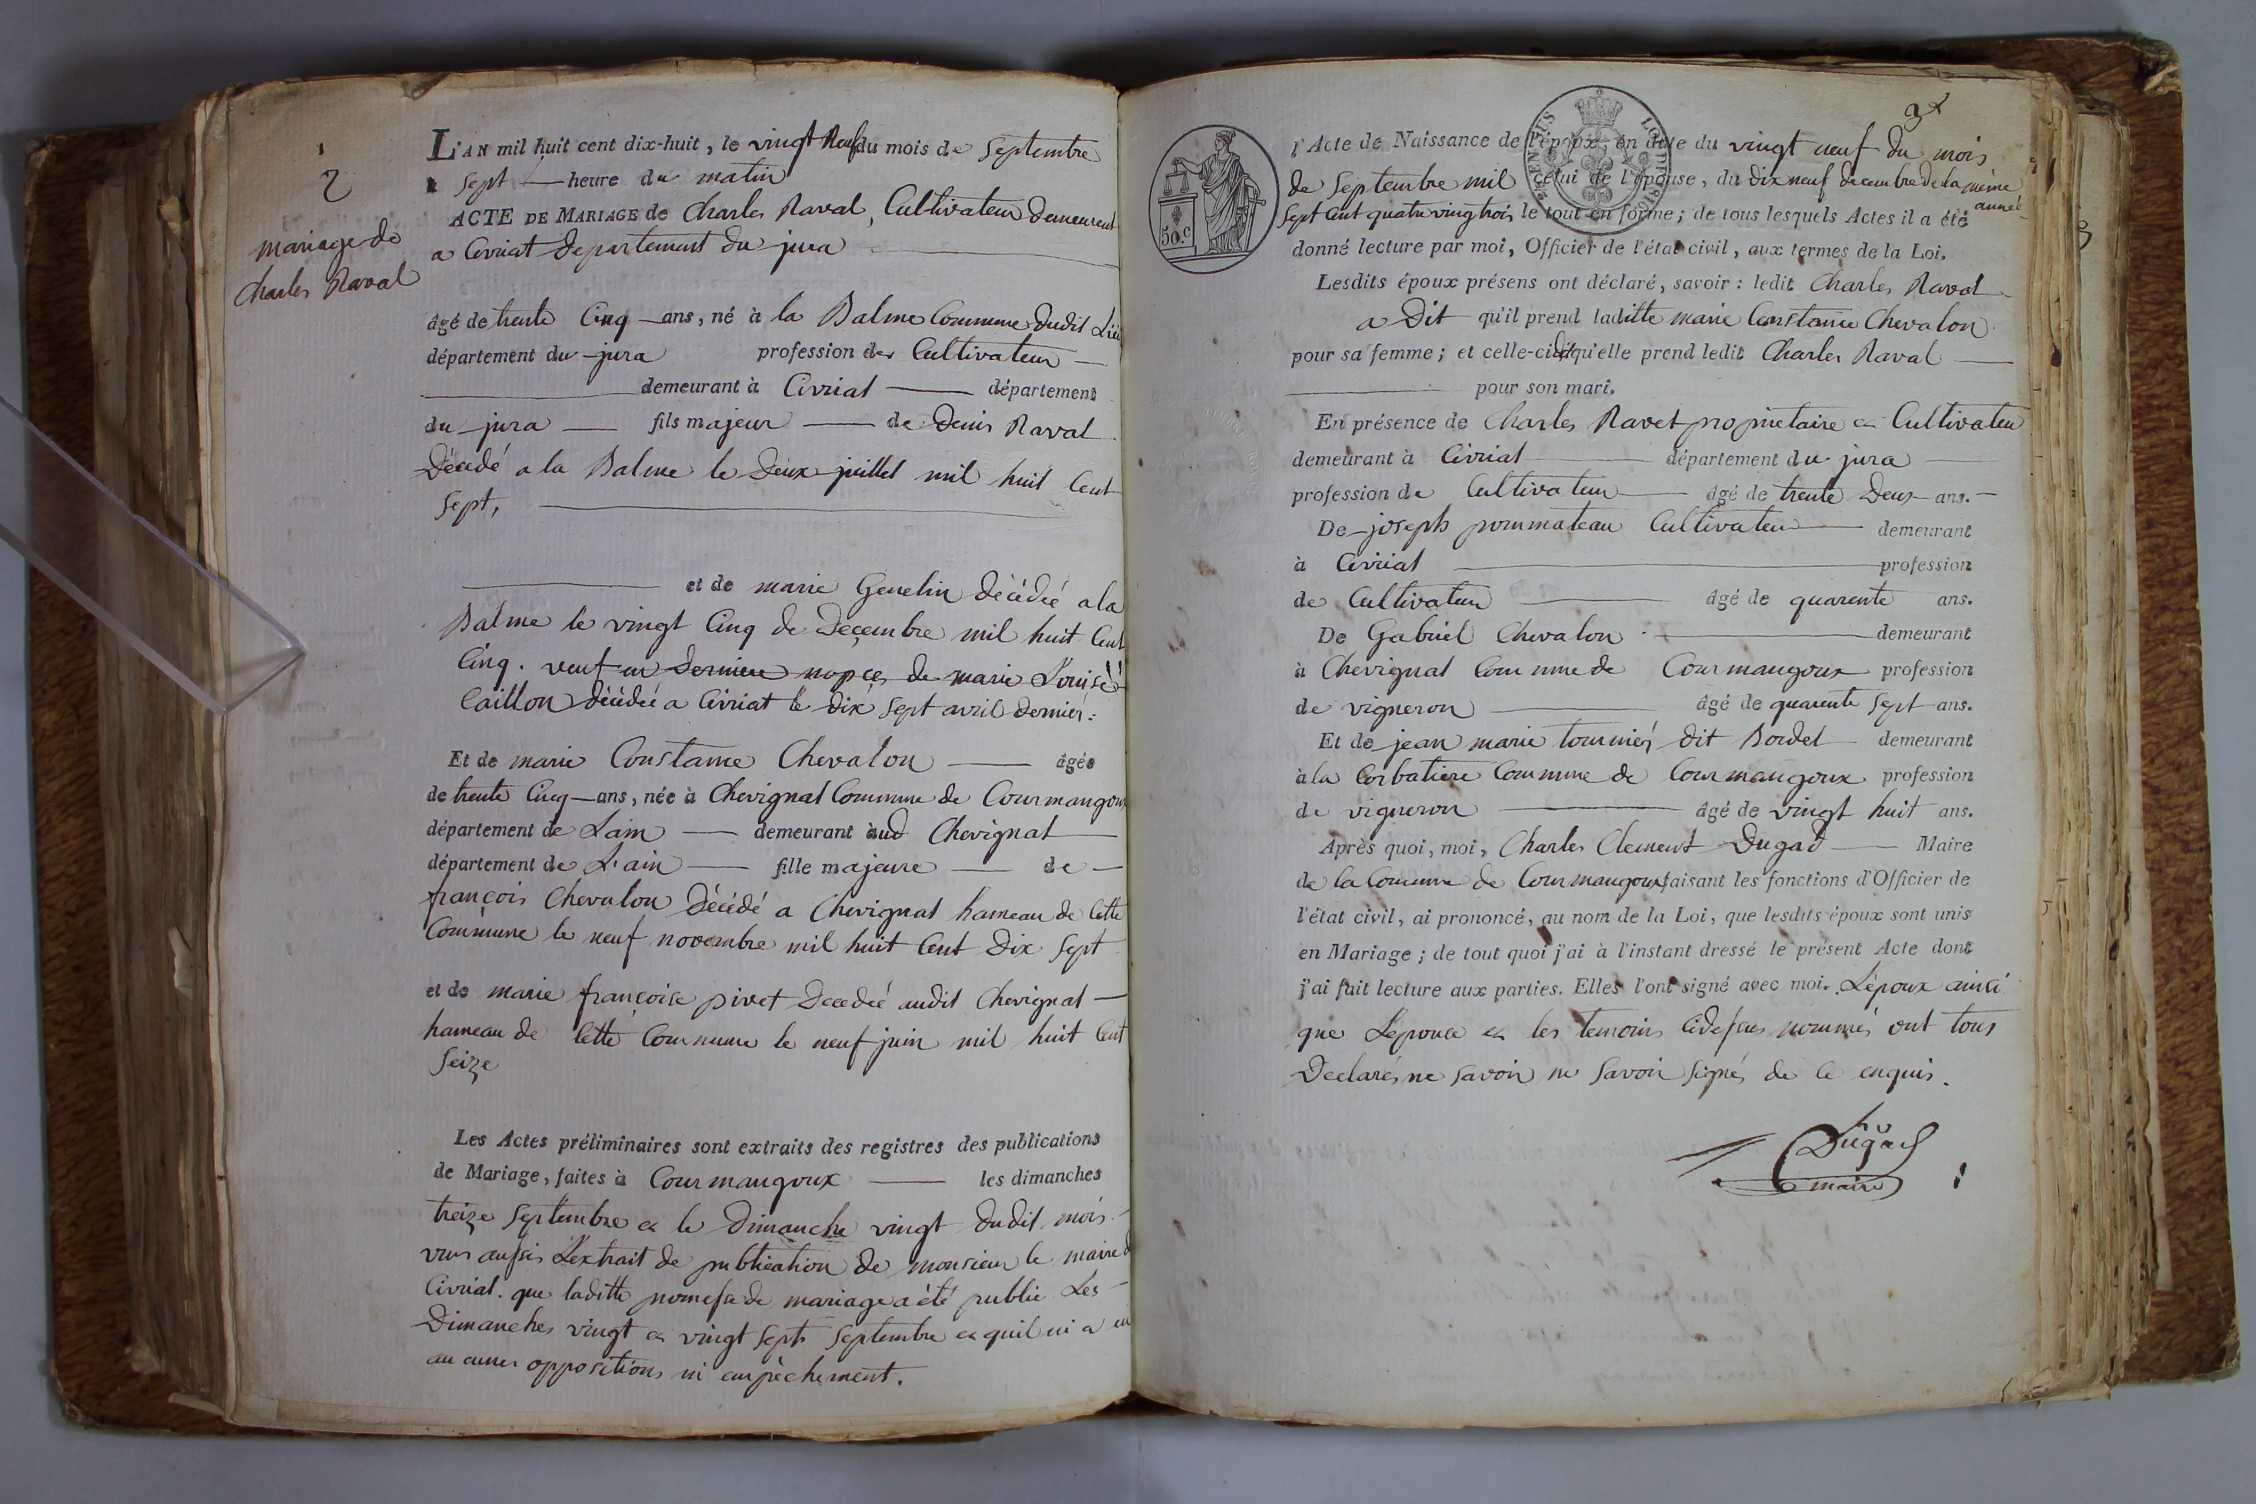 2
mariage de
Charles Raval
L'AN mil huit cent dix-huit, le vingt Neuf du mois de Septembre
à Sept heure du matin
ACTE DE MARIAGE de Charles Raval, Cultivateur Demeurent
a Civriat departement du jura
âgé de trente Cinq ans, né à la Balme Commune dudit Lieu
département du jura profession de Cultivateur
demeurant à Civriat département
du jura fils majeur de Denis Raval
Décédé a la Balme le Deux juillet mil huit Cent
Sept,
et de marie Genelin décédée a la
Balme le vingt Cinq de Decembre mil huit Cent
Cinq. veuf en Derniere nopces de marie Louise
Caillon décédée a Civriat le dix Sept avril dernier
Et de marie Constance Chevalon âgée
de trente Cinq ans, née à Chevignat Commune de Courmangoux
département de Lain demeurant aud Chevignat
département de L'ain fille majeure de
françois Chevalon Décédé a Chevignat hameau de Cette
Commune le neuf novembre mil huit Cent Dix Sept
et de marie françoise pivet Decedeé audit Chevignat
hameau de Cette Commune le neuf juin mil huit Cent
Seize
Les Actes préliminaires sont extraits des registres des publications
de Mariage, faites à Courmangoux les dimanches
treize Septembre et le Dimanche vingt dudit mois
vus aussi L'extrait de publication de monsieur le maire de
Civriat. que laditte promesse de mariage a été publié Les
Dimanches vingt et vingt Sept Septembre et quil ni a eu
aucunes oppositions ni empêchement.
3
50.c
l'Acte de Naissance de l'époux, en date du vingt neuf du mois
de Septembre mil celui de l'épouse, du dix neuf decembre de la même
année
Sept Cent quatre vingt trois le tout en forme; de tous lesquels Actes il a été
donné lecture par moi, Officier de l'état civil, aux termes de la Loi.
Lesdits époux présens ont déclaré, savoir: ledit Charles Raval
a Dit qu'il prend laditte marie Constance Chevalon
pour sa femme; et celle-ci dit qu'elle prend ledit Charles Raval
pour son mari.
En présence de Charles Ravet propriétaire et Cultivateur
demeurant à Civriat département du jura
profession de Cultivateur âgé de trente Deux ans.
De joseph pommateau Cultivateur demeurant
à Civriat profession
de Cultivateur âgé de quarente ans.
De Gabriel Chevalon demeurant
à Chevignat Commune de Courmangoux profession
de vigneron âgé de quarente Sept ans.
Et de jean marie tournier dit Bordel demeurant
à la Corbatiere Commune de Courmangoux profession
de vigneron âgé de vingt huit ans.
Après quoi, moi, Charles Clement Dugad Maire
de la Commune de Courmangoux faisant les fonctions d'Officier de
l'état civil, ai prononcé, au nom de la Loi, que lesdits époux sont unis
en Mariage; de tout quoi j'ai à l'instant dressé le présent Acte dont
j'ai fait lecture aux parties. Elles l'ont signé avec moi. L'époux ainsi
que L'epouse et les temoins cidessus nommés ont tous
Declarés ne savoir ne Savoir Signés de ce enquis.
Dugad
maire